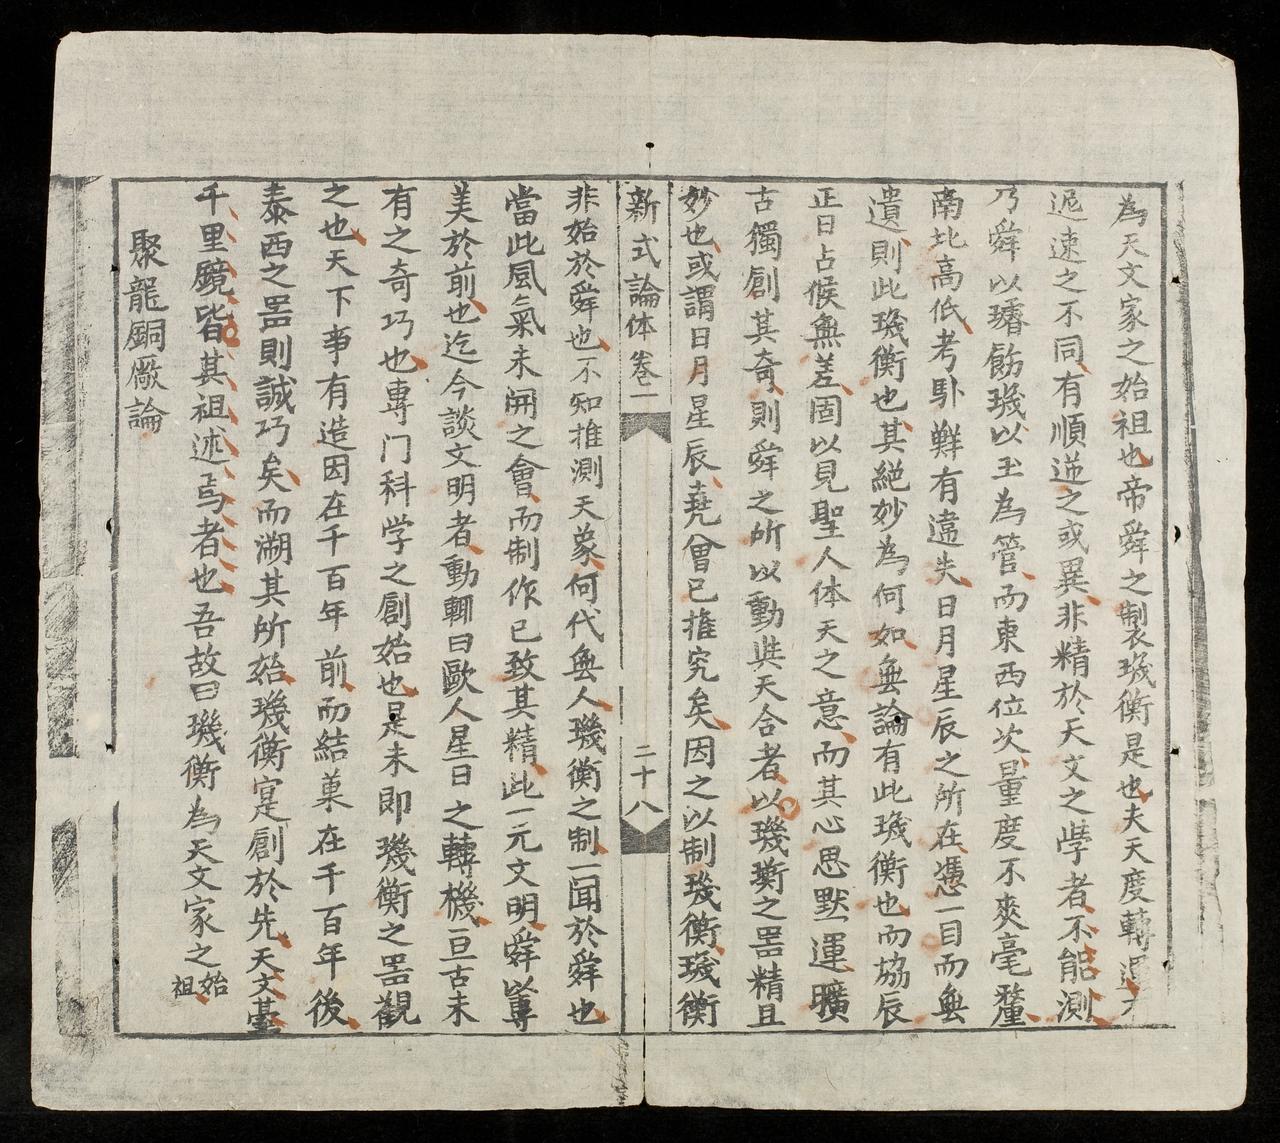 為天文家之始祖也帝舜之製璣衡是也夫天度轉運之
遲速之不同有順逆之或異非精於天文之學者不能測
乃舜以璿飭璣以玉為管而東西位次量度不爽毫釐
南北高低考馭鮮有違失日月星辰之所在憑一目而無
遺則此璣衡也其絕妙為何如無論有此璣衡也而協辰
正日占候無差固以見聖人体天之意而其心思默運曠
古獨創其奇則舜之所以動與天合者以璣衡之噐精且
妙也或謂日月星辰堯曾已推究矣因之以制璣衡璣衡
新式論体卷二
二十八
非始於舜也不知推測天象何代無人璣衡之制一聞於舜也
當此風氣未開之會而制作已致其精此一元文明舜以專
美於前也迄今談文明者動輒曰歐人星日之轉機亘古未
有之奇巧也專门科学之創始也是未即璣衡之噐觀
之也天下事有造因在千百年前而結菓在千百年後
泰西之噐則誠巧矣而溯其所始璣衡寔創於先天文臺
千里鏡皆其祖述焉者也吾故曰璣衡為天文家之始祖
聚龍銅厰論